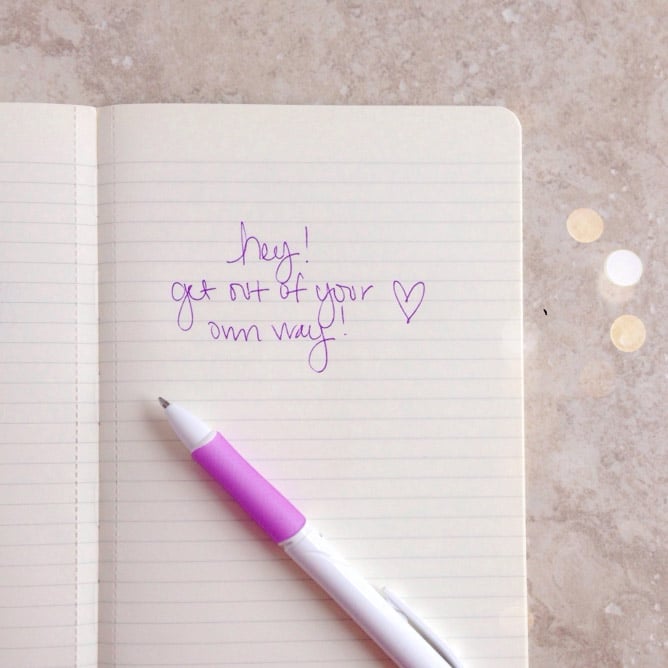 hey!
get out of your ♡
own way!